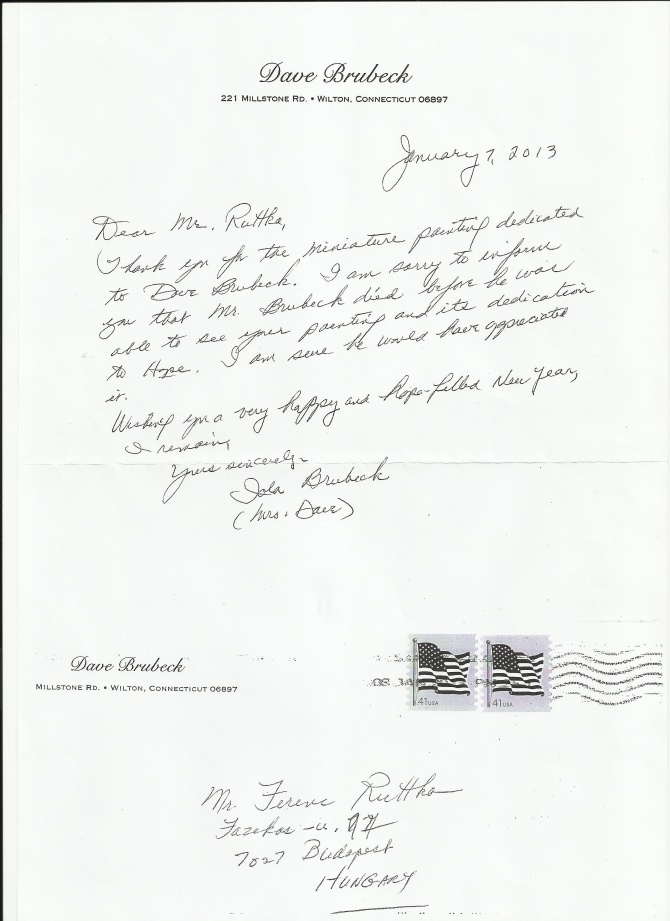 Dave Brubeck
221 Millstone Rd. • Wilton, Connecticut 06897
January 7, 2013
Dear Mr. Ruttka,
Thank you for the miniature painting dedicated
to Dave Brubeck. I am sorry to inform
you that Mr. Brubeck died before he was
able to see your painting and its dedication
to Hope. I am sure he would have appreciated
it.
Wishing you a very happy and hope-filled New Year,
I remain,
Yours sincerely,
Iola Brubeck
(Mrs. Dave)
Dave Brubeck
Millstone Rd. • Wilton, Connecticut 06897
41 USA
41 USA
Mr. Ferenc Ruttka
Fazekas -u.
7027 Budapest
HUNGARY